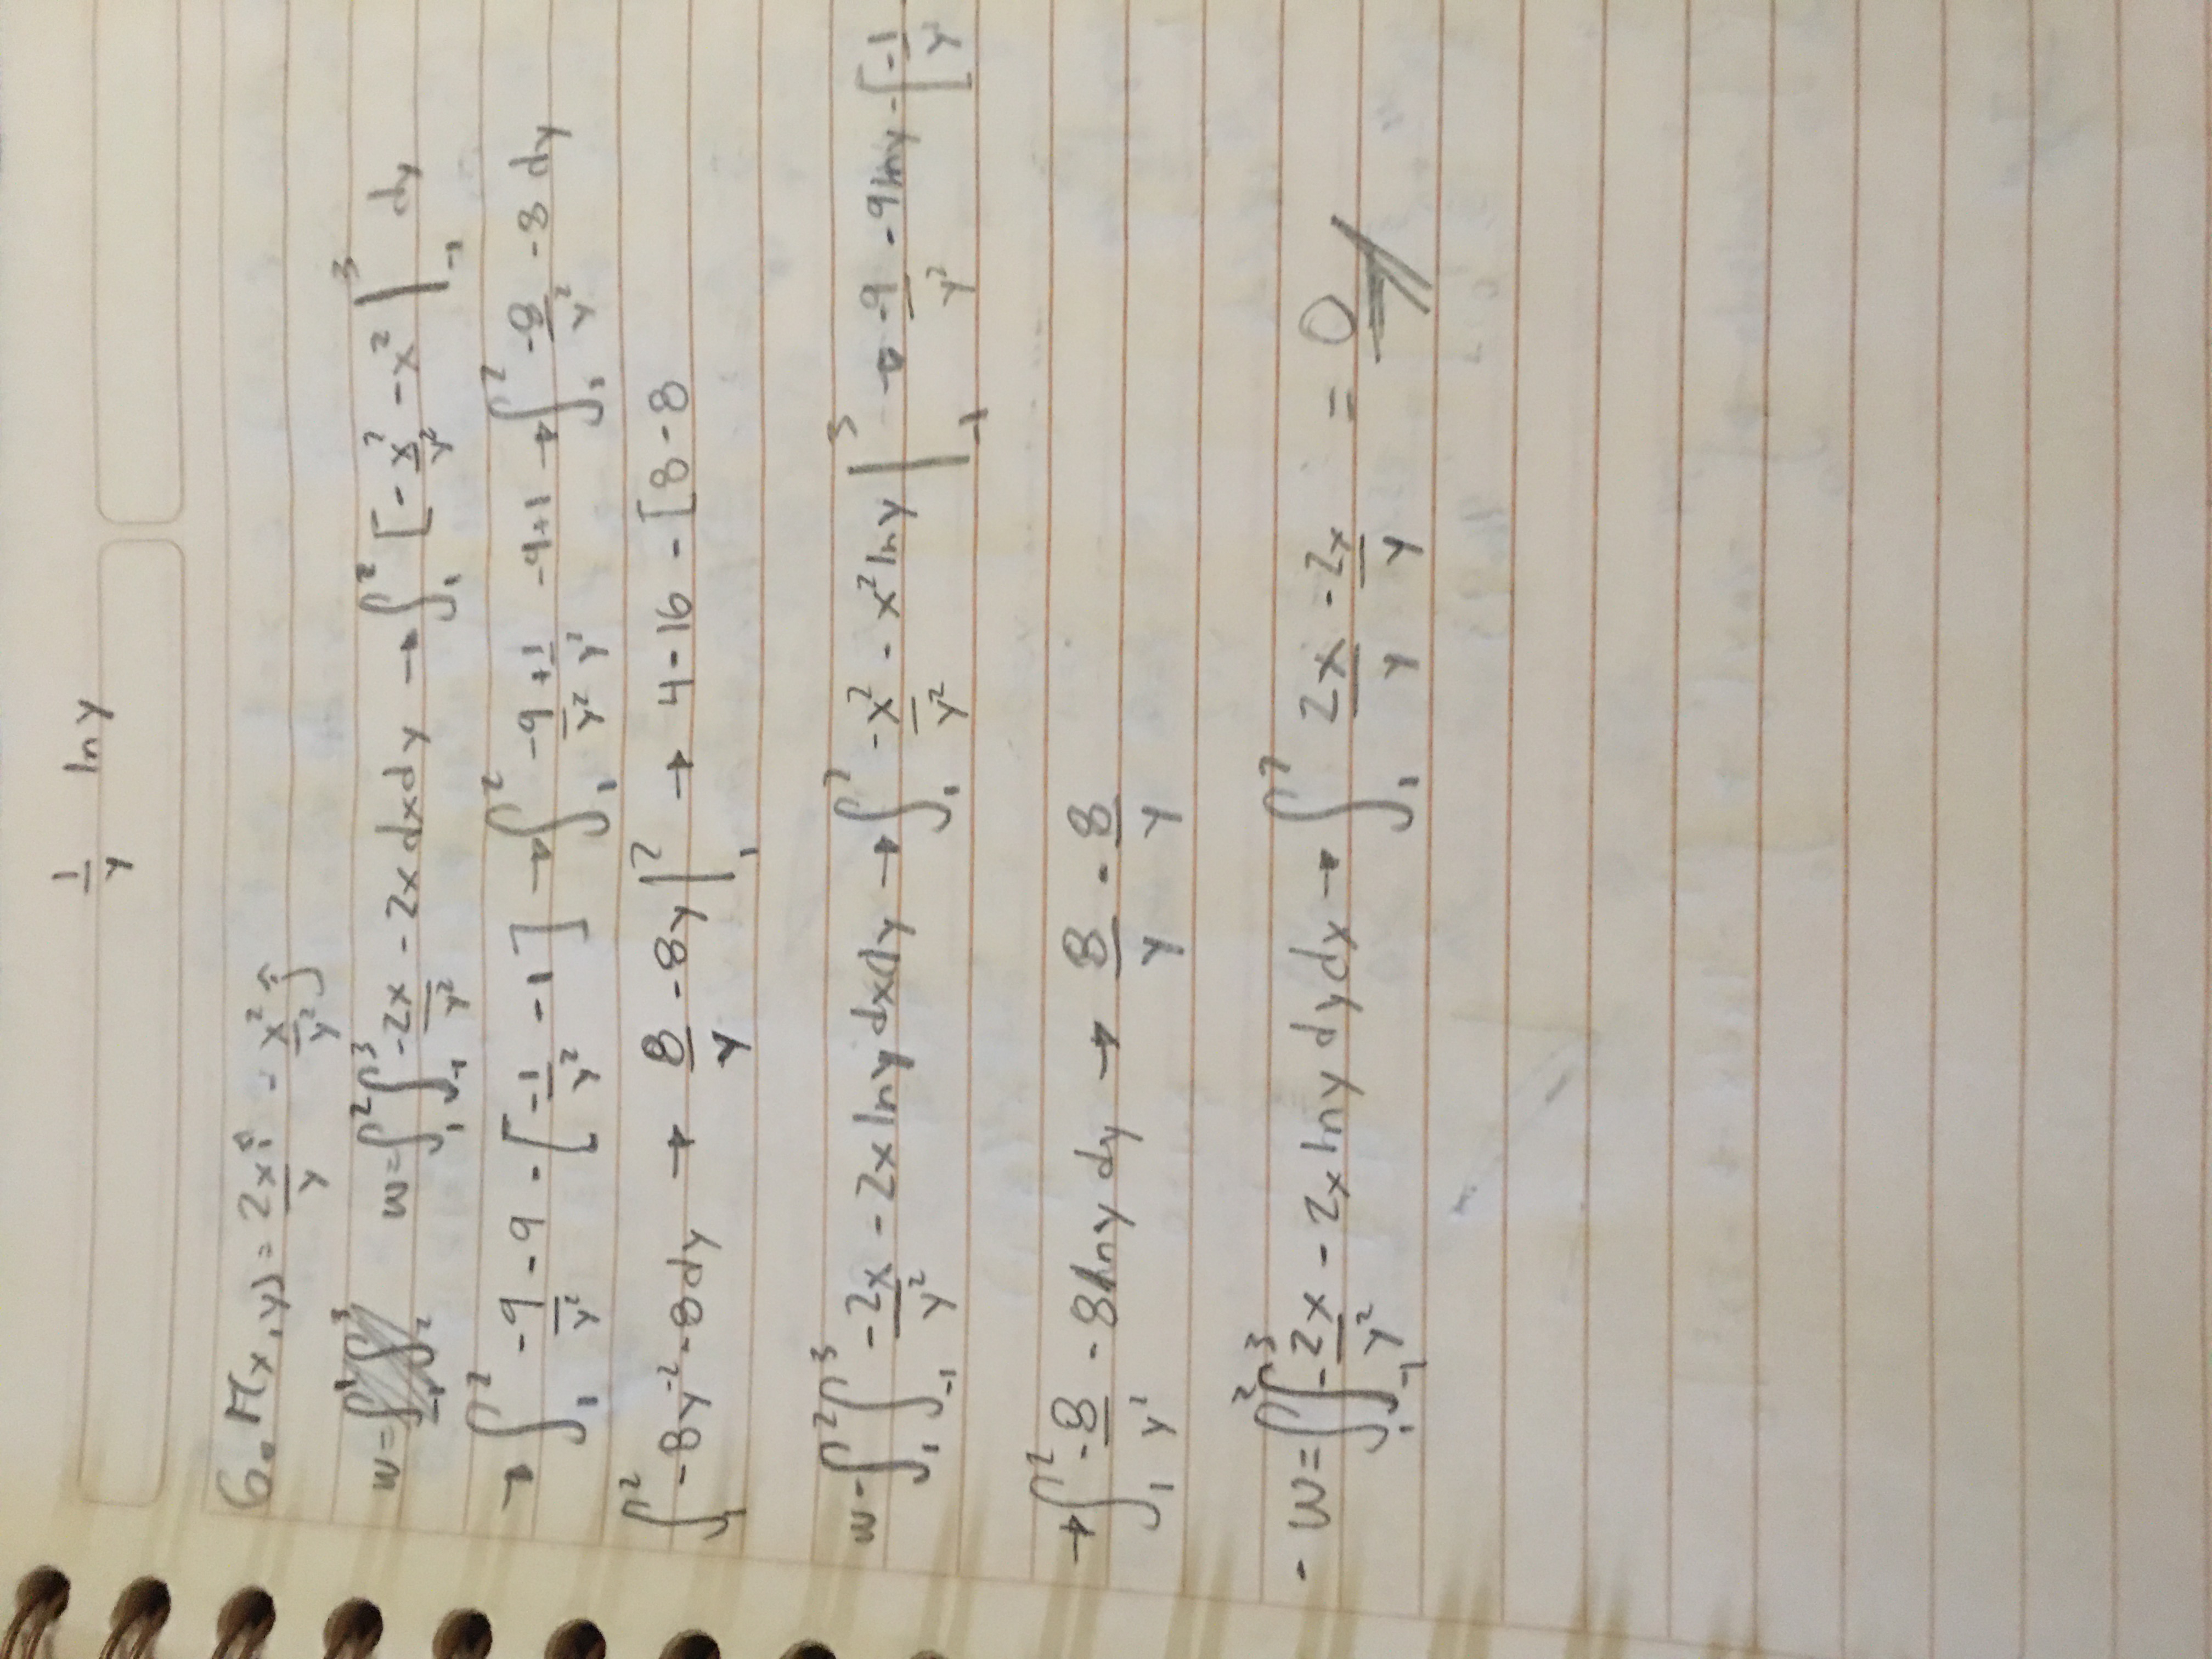 1/y ln y
6. F(x,y) = 2x/y î - x²/y² ĵ
w = w = ∫₁² ∫₋₁³ -2x/y² - 2x dx dy → ∫₁² [-x²/y² - x² |₋₁³ dy
→ ∫₁² -9/y² - 9 - [-1/y² - 1] → ∫₁² -9/y² + 1/y² -9+1 → ∫₁² -8/y² - 8 dy
∫₁² -8y⁻² - 8 dy → 8/y - 8y |₁² → 4 - 16 - [8 - 8
w - ∫₁² ∫₋₁³ -2x/y² - 2x ln y dx dy → ∫₁² -x²/y² - x² ln y |₋₁³ → -9/y² - 9 ln y - [-1/y²
→ ∫₁² -8/y² - 8 ln y dy → 8/y - 8/y
- w = ∫₁² ∫₋₁³ -2x/y² - 2x ln y dy dx → ∫₁² 2x/y - 2x/y = 0